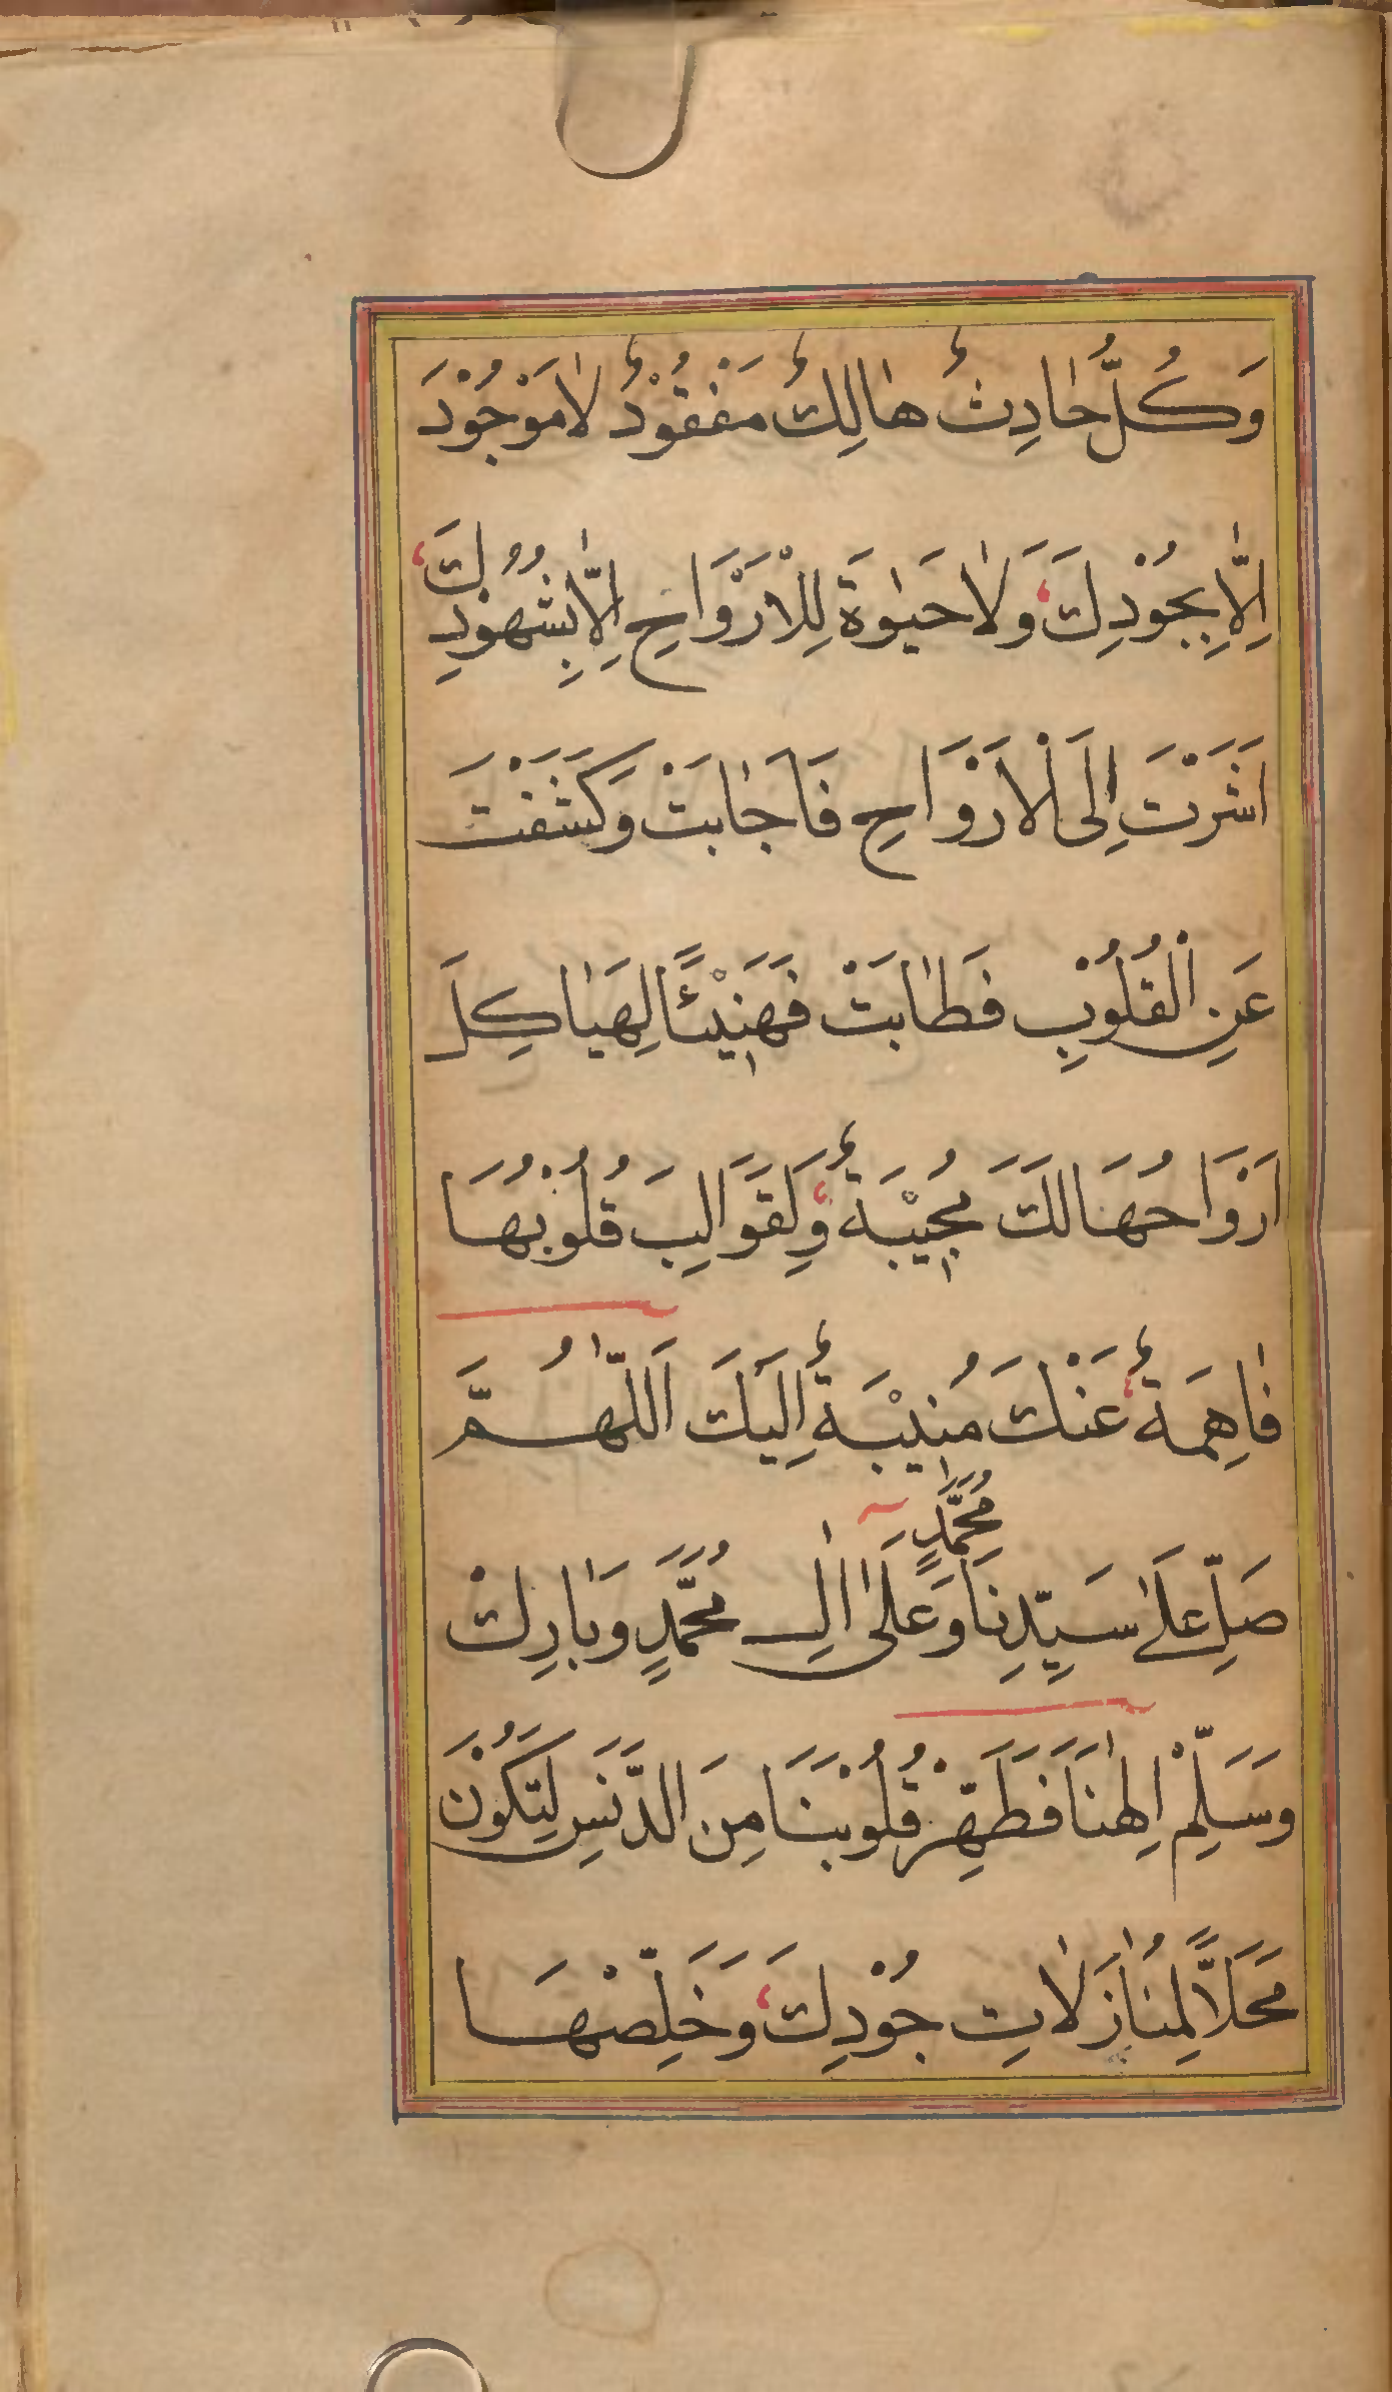 وَكُلُّ حَادِثٌ هَالِكٌ مَفْقُوْدٌ لَا مَوْجُوْدَ
اِلَّا بِجُوْدِكَ، وَلَا حَيٰوةَ لِلْاَرْوَاحِ اِلَّا بِشُهُوْدِكَ،
اَشَرْتَ اِلَى الْاَرْوَاحِ فَاَجَابَتْ وَكَشَفْتَ
عَنِ الْقُلُوْبِ فَطَابَتْ فَهَنِيْئًا لِهَيَاكِلَ
اَرْوَاحُهَا لَكَ مُجِيْبَةٌ، وَلِقَوَالِبَ قُلُوْبُهَا
فَاهِمَةٌ، عَنْكَ مُنِيْبَةٌ اِلَيْكَ اَللّٰهُمَّ
صَلِّ عَلٰى سَيِّدِنَا مُحَمَّدٍ وَعَلٰى اٰلِ مُحَمَّدٍ وَبَارِكْ
وَسَلِّمْ اِلٰهَنَا فَطَهِّرْ قُلُوْبَنَا مِنَ الدَّنَسِ لِتَكُوْنَ
مَحَلًّا لِمُنَازَلَاتِ جُوْدِكَ، وَخَلِّصْهَا